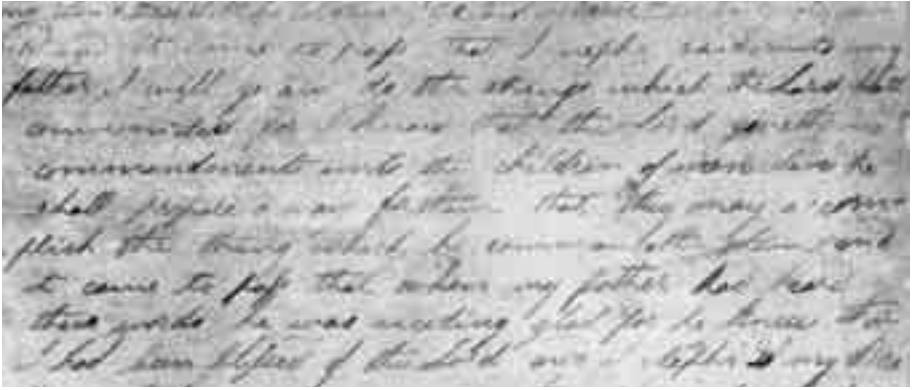 it came to pass that I nephi said unto my
father I will go and do the things which the Lord hath
commanded for I know that the Lord giveth no
commandments unto the children of men save he
shall prepare a way for them that they may accom
plish the thing which he commandeth them and
it came to pass that when my father had heard
these words he was exceding glad for he knew that
I had been blessed of the Lord and I nephi & my